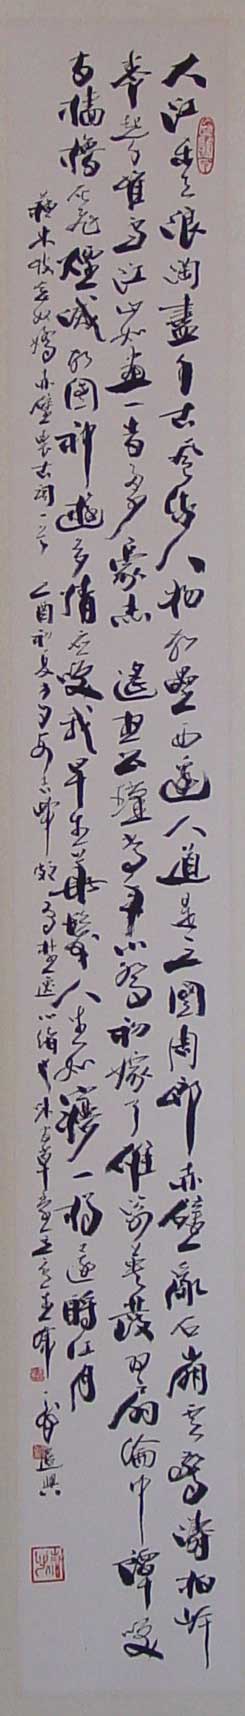 大江東去浪淘盡千古風流人物故壘西邊人道是三國周郎赤壁亂石崩雲驚濤拍岸
卷起千堆雪江山如畫一時多少豪傑遙想公瑾當年小喬初嫁了雄姿英發羽扇綸巾譚笑
間檣櫓灰飛煙滅故國神遊多情應笑我早生華髮人生如夢一樽還酹江月
蘇東坡念奴嬌赤壁懷古詞一首 乙酉初夏